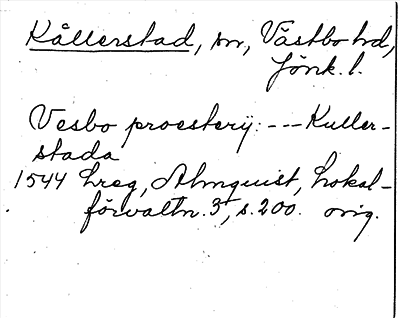 Kållerstad, sn, Västbo hd,
Jönk. l.
Vesbo proesterij: --- Kuller-
stada
1544 hreg, Almquist, Lokal-
förvaltn. 3, s. 200. orig.